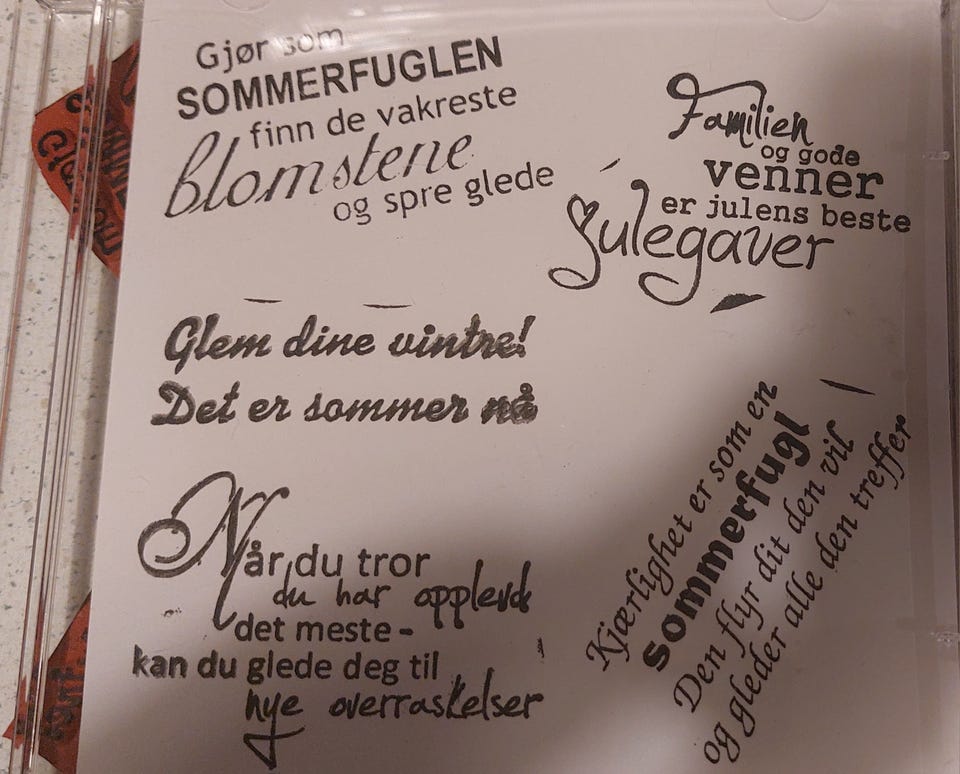 Gjør som
SOMMERFUGLEN
finn de vakreste
blomstene
og spre glede
Familien
og gode
venner
er julens beste
julegaver
Glem dine vintre!
Det er sommer nå
Når du tror
du har opplevd
det meste -
kan du glede deg til
nye overraskelser
Kjærlighet er som en
sommerfugl
Den flyr dit den vil
og gleder alle den treffer